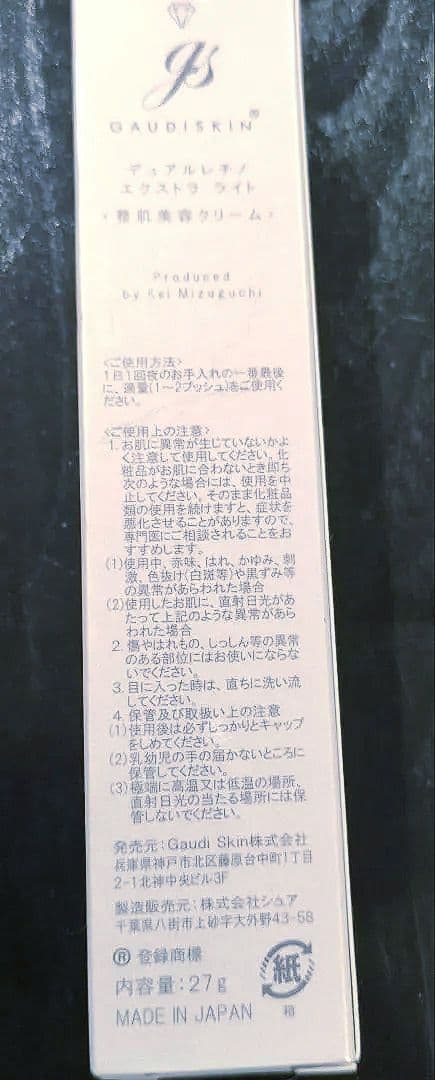 gs
GAUDISKIN®
デュアルレチノ
エクストラ ライト
<整肌美容クリーム>
Produced
by Kei Mizuguchi
<ご使用方法>
1日1回夜のお手入れの一番最後
に、適量(1~2プッシュ)をご使用く
ださい。
<ご使用上の注意>
1. お肌に異常が生じていないかよ
く注意して使用してください。化
粧品がお肌に合わないとき即ち
次のような場合には、使用を中
止してください。そのまま化粧品
類の使用を続けますと、症状を
悪化させることがありますので、
専門医にご相談されることをお
すすめします。
(1)使用中、赤味、はれ、かゆみ、刺
激、色抜け(白斑等)や黒ずみ等
の異常があらわれた場合
(2)使用したお肌に、直射日光があ
たって上記のような異常があら
われた場合
2. 傷やはれもの、しっしん等の異常
のある部位にはお使いにならな
いでください。
3. 目に入った時は、直ちに洗い流
してください。
4. 保管及び取扱い上の注意
(1)使用後は必ずしっかりとキャップ
をしめてください。
(2)乳幼児の手の届かないところに
保管してください。
(3)極端に高温又は低温の場所、
直射日光の当たる場所には保
管しないでください。
発売元:Gaudi Skin株式会社
兵庫県神戸市北区藤原台中町1丁目
2-1北神中央ビル3F
製造販売元:株式会社シュア
千葉県八街市上砂字大外野43-58
® 登録商標
内容量:27g
MADE IN JAPAN
紙
箱